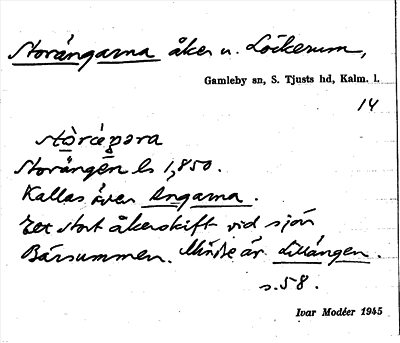 Storängarna åker u. Löckerum,
Gamleby sn, S. Tjusts hd, Kalm. l.
14
Storängen ls 1,850.
Kallas även Ängarna.
Ett stort åkerskift vid sjön
Bårsummen. Mindre är Lillängen.
s. 58.
Ivar Modéer 1945